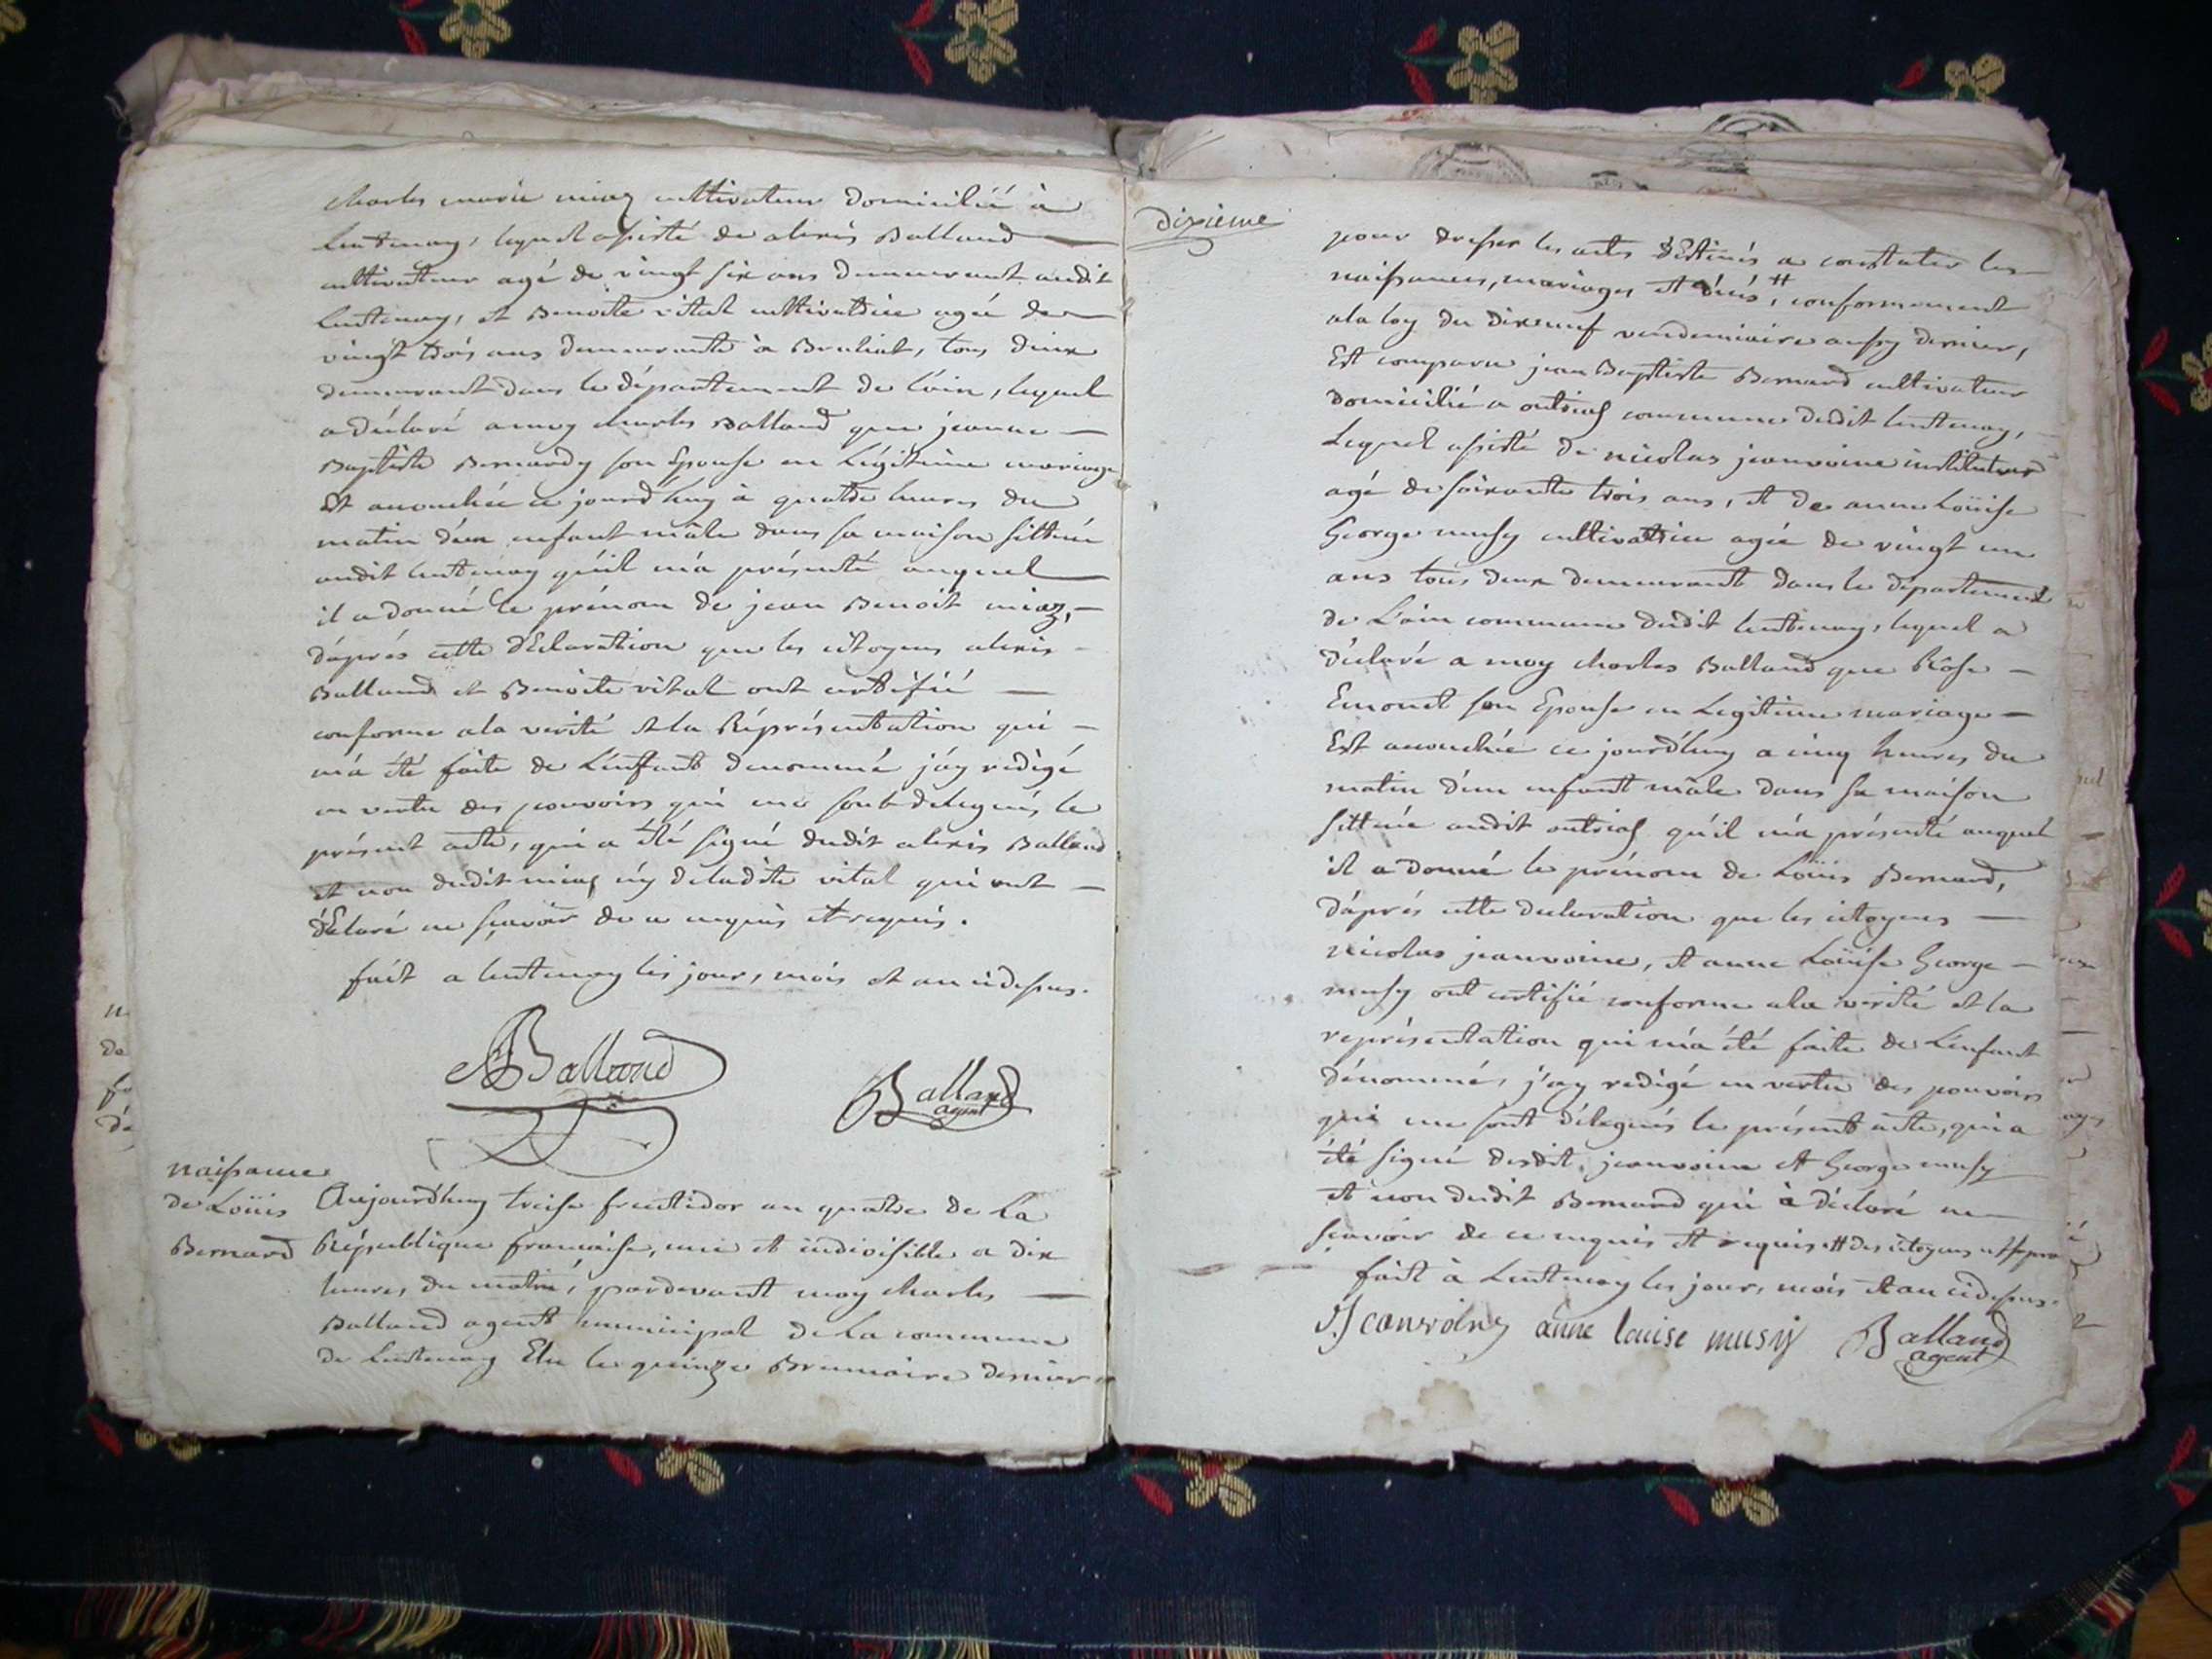 charles marie miaz cultivateur domicilié à
Lentenay, lequel assisté de alexis Balland
cultivateur agé de vingt six ans demeurant audit
Lentenay, et Benoite vital cultivatrice agée de
vingt trois ans demeurante à Bruliat, tous deux
demeurant dans le département de L'ain, lequel
a déclaré a moy charles Balland que jeanne
Baptiste Bernardy son Epouse en Légitime mariage
Est accouchée ce jourd'huy à quatre heures du
matin d'un enfant mâle dans sa maison sittuée
audit Lentenay qu'il m'a présenté auquel
il a donné le prénom de jean Benoit miaz,
d'après cette déclaration que les citoyens alexis
Balland et Benoite vital ont certifié
conforme a la vérité et la Réprésentation qui
m'a été faite de L'enfant dénommé j'ay redigé
en vertu des pouvoirs qui me sont delegués le
présent acte, qui a été signé dudit alexis Balland
et non dudit miaz n'y deladite vital qui ont
déclaré ne sçavoir de ce enquis et requis.
fait a Lentenay les jour, mois et an cidessus.
A Balland
Balland
agent
naissance
de Loüis
Bernard
Aujourd'huy treise fructidor an quatre de La
République francaise, une et indivisible a dix
heures du matin, pardevant moy charles
Balland agent municipal de La commune
de Lentenay Elu le quinze Brumaire dernier
dixieme
pour dresser les actes déstinés a constater les
naissances, mariages et décés, # conformement
ala loy du dixneuf vendemiaire aussy dernier,
Est comparu jean Baptiste Bernard cultivateur
domicilié a outriaz commune dudit Lentenay,
Lequel assisté de nicolas jeanvoine instituteur
agé de soixante trois ans, et de anne Loüise
George musy cultivatrice agée de vingt un
ans tous deux demeurant dans le département
de L'ain commune dudit Lentenay, lequel a
déclaré a moy charles Balland que Rôse
Emonet son Epouse en Legitime mariage
Est accouchée ce jourd'huy a cinq heures du
matin d'un enfant mâle dans sa maison
sittuée audit outriaz qu'il m'a présenté auquel
il a donné le prénom de Loüis Bernard,
d'après cette declaration que les citoyens
nicolas jeanvoine, et anne Loüise George
musy ont certifié conforme ala vérité et la
représentation qui m'a été faite de L'enfant
dénommé, j'ay redigé en vertu des pouvoirs
qui me sont délegués le présent acte, qui a
été signé desdit jeanvoine et George musy
et non dudit Bernard qui à déclaré ne
sçavoir de ce enquis et requis # des citoyens
fait à Lentenay les jour, mois et an cidessus.
anne louise musy
Balland
agent